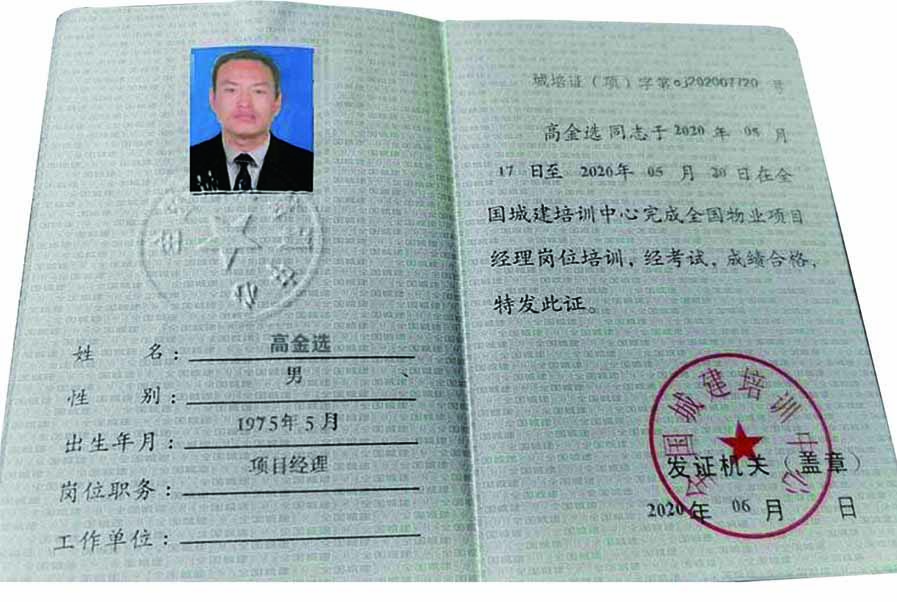 高金选
姓 名：
男
性 别：
1975年5月
出生年月：
项目经理
岗位职务：
工作单位：
城培证（项）字第 号
高金选 同志于 2020 年 05 月
17 日至 2020年 05 月 20 日在全
国城建培训中心完成全国物业项目
经理岗位培训，经考试，成绩合格，
特发此证。
全国城建培训中心
发证机关（盖章）
2020年 06 月 日